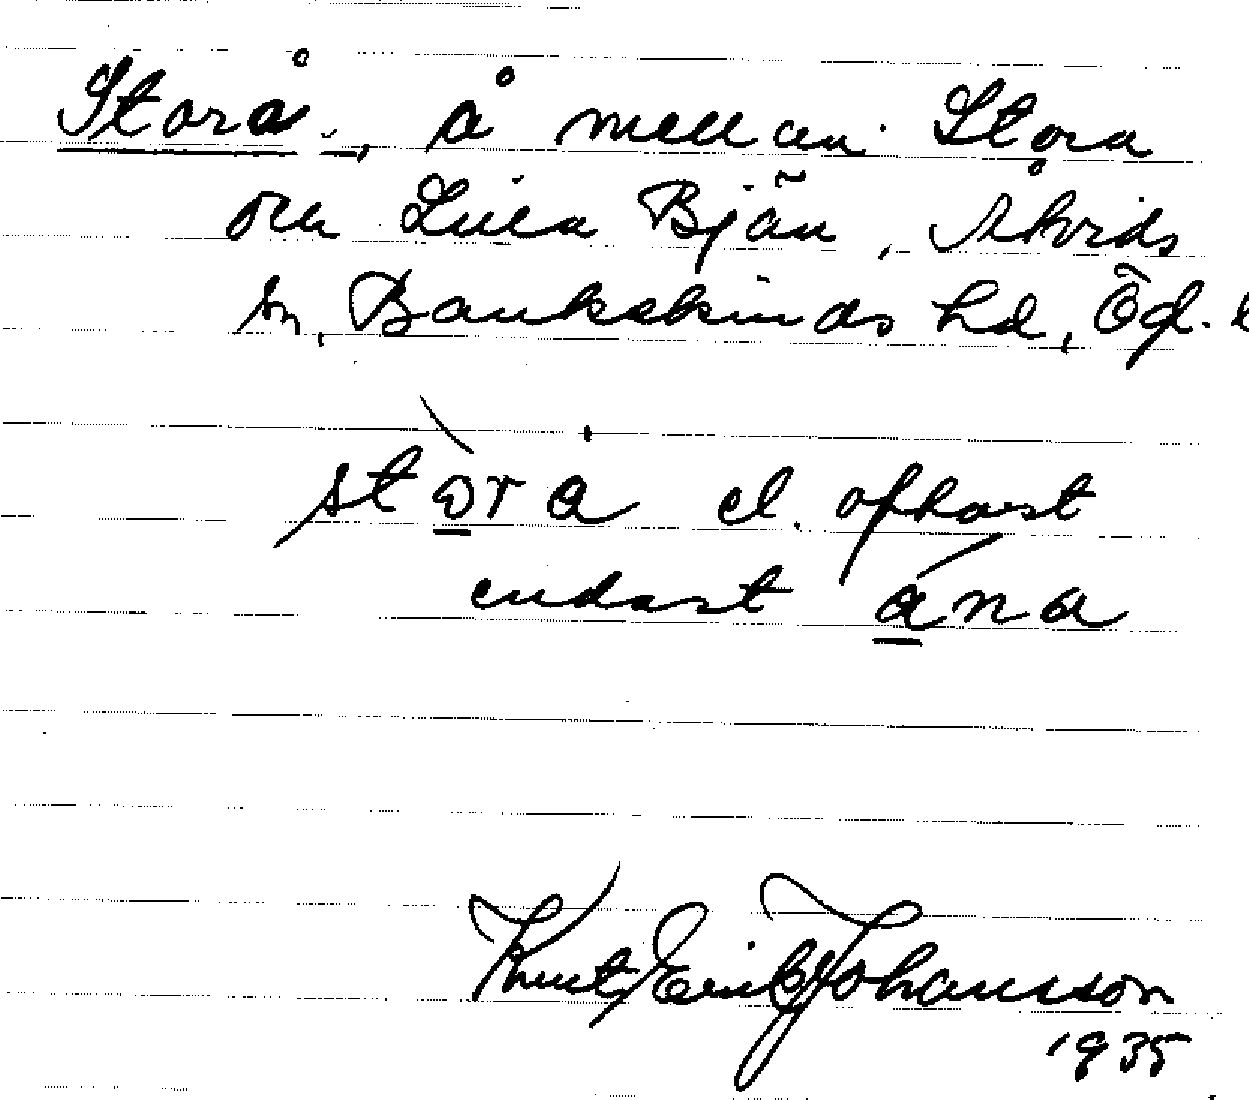 Storå, å mellan Stora
och Lilla Bjän, Åtvids
sn, Bankekinds hd, Ögl.
stora el. oftast
endast ana
Knut Erik Johansson
1935